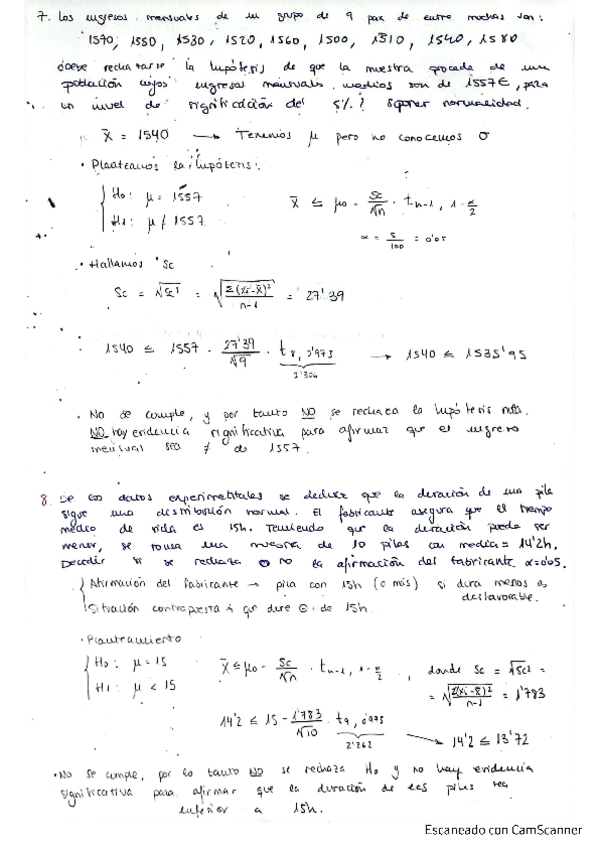 7. Los ingresos mensuales de un grupo de 9 pax de entre muchas son:
1570, 1550, 1530, 1520, 1560, 1500, 1510, 1540, 1580
¿debe rechazarse la hipótesis de que la muestra procede de una
población cuyos ingresos mensuales medios son de 1557€, para
un nivel de significación del 5%? Suponer normalidad.
x̄ = 1540 → Tenemos μ pero no conocemos σ
• Planteamos la hipótesis:
H0: μ = 1557
H1: μ ≠ 1557
x̄ ≤ μ0 - Sc/√n · t n-1, 1-α/2
α = 5/100 = 0'05
• Hallamos Sc
Sc = √Sc² = √(Σ(xi-x̄)²/n-1) = 27'39
1540 ≤ 1557 - 27'39/√9 · t 8, 0'975 → 1540 ≤ 1535'95
2'306
• No se cumple, y por tanto NO se rechaza la hipótesis nula.
NO hay evidencia significativa para afirmar que el ingreso
mensual sea ≠ de 1557.
8. De los datos experimentales se deduce que la duración de una pila
sigue una distribución normal. El fabricante asegura que el tiempo
medio de vida es 15h. Temiendo que la duración puede ser
menor, se toma una muestra de 10 pilas con media = 14'2h.
Decidir si se rechaza o no la afirmación del fabricante α=0'05.
Afirmación del fabricante → pila con 15h (o más) si dura menos es
desfavorable.
Situación contrapuesta → que dure ⊖ de 15h.
• Planteamiento
H0: μ = 15
H1: μ < 15
x̄ ≤ μ0 - Sc/√n · t n-1, 1-α/2, donde Sc = √Sc² =
= √(Σ(xi-x̄)²/n-1) = 1'783
14'2 ≤ 15 - 1'783/√10 · t 9, 0'975
2'262 → 14'2 ≤ 13'72
• No se cumple, por lo tanto NO se rechaza H0 y no hay evidencia
significativa para afirmar que la duración de las pilas sea
inferior a 15h.
Escaneado con CamScanner